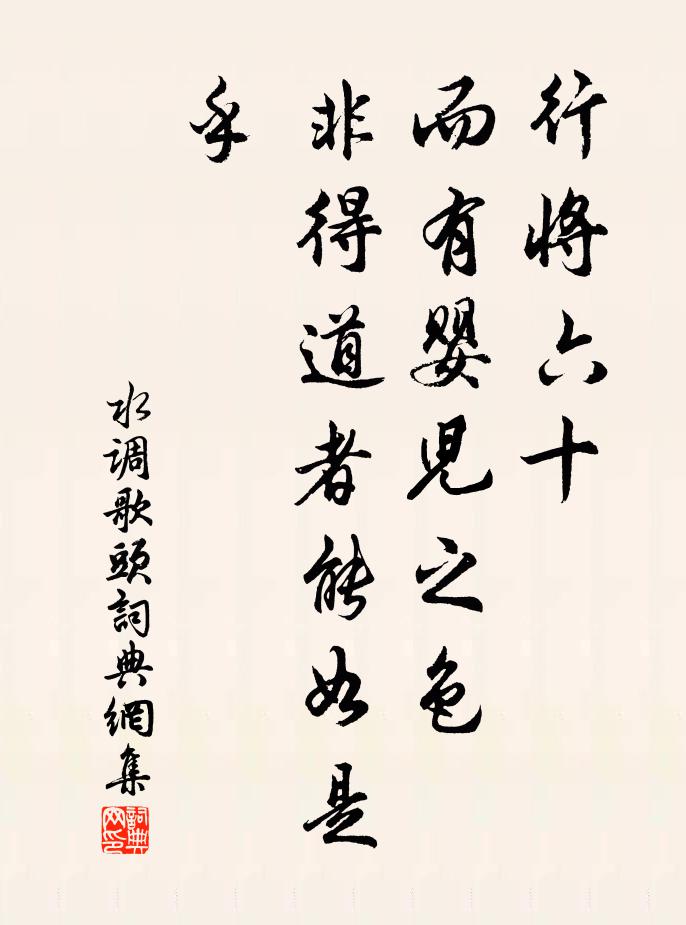 行将六十
而有婴児之色
非得道者能如是
乎
水调歌頭詞典網集
詞典
网印